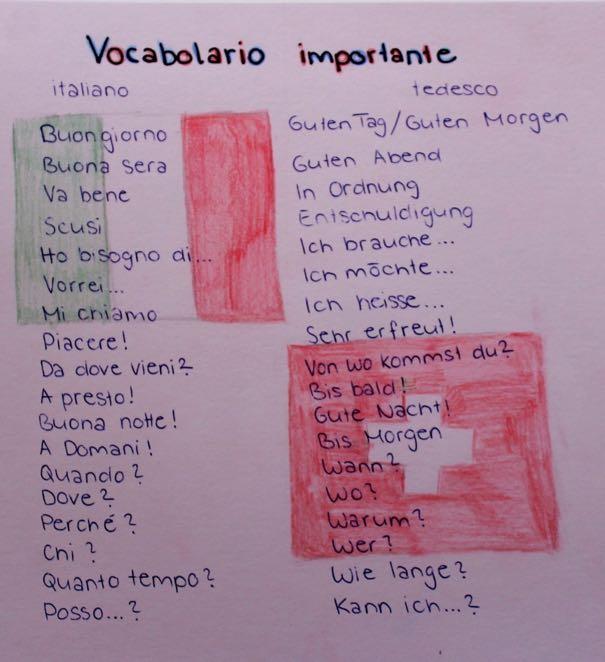 Vocabolario importante
italiano tedesco
Buongiorno Guten Tag/Guten Morgen
Buona sera Guten Abend
Va bene In Ordnung
Scusi Entschuldigung
Ho bisogno di... Ich brauche...
Vorrei... Ich möchte...
Mi chiamo Ich heisse...
Piacere! Sehr erfreut!
Da dove vieni? Von wo kommst du?
A presto! Bis bald!
Buona notte! Gute Nacht!
A Domani! Bis Morgen
Quando? Wann?
Dove? Wo?
Perché? Warum?
Chi? Wer?
Quanto tempo? Wie lange?
Posso...? Kann ich...?